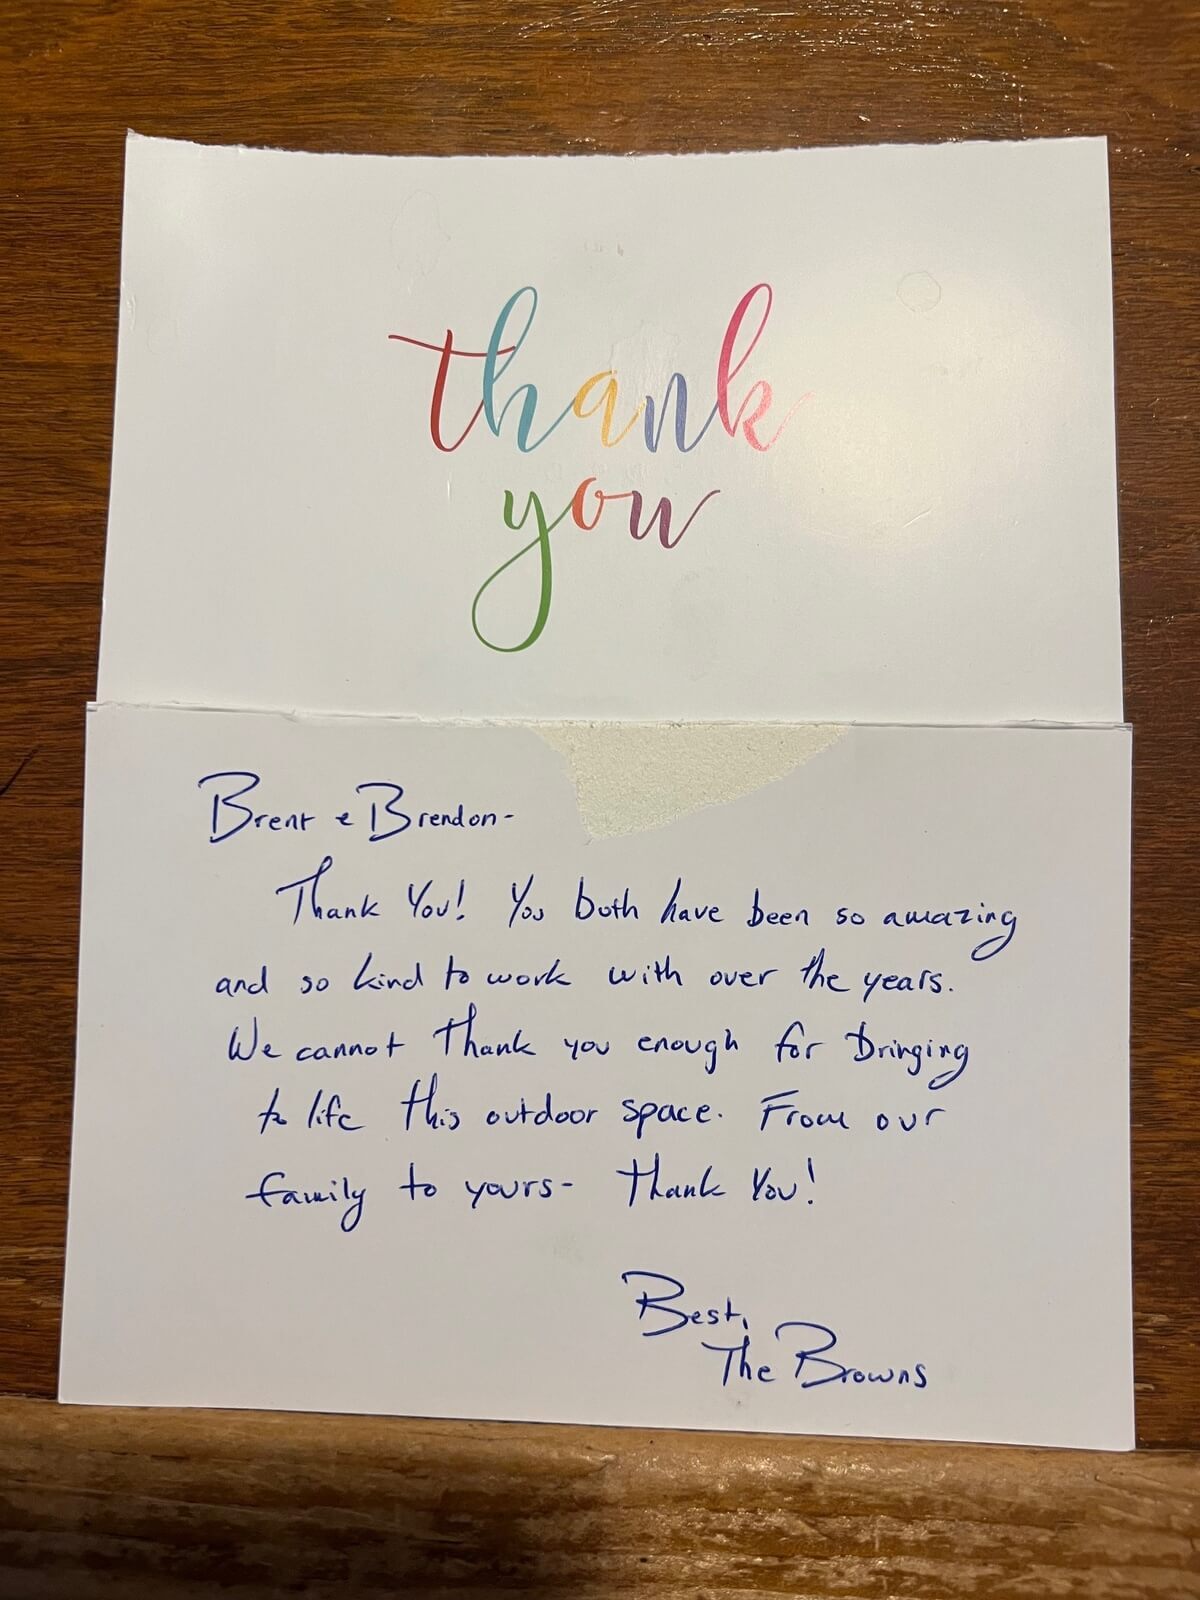 thank
you
Brent & Brendon-
Thank You! You both have been so amazing
and so kind to work with over the years.
We cannot thank you enough for bringing
to life this outdoor space. From our
family to yours- Thank You!
Best,
The Browns